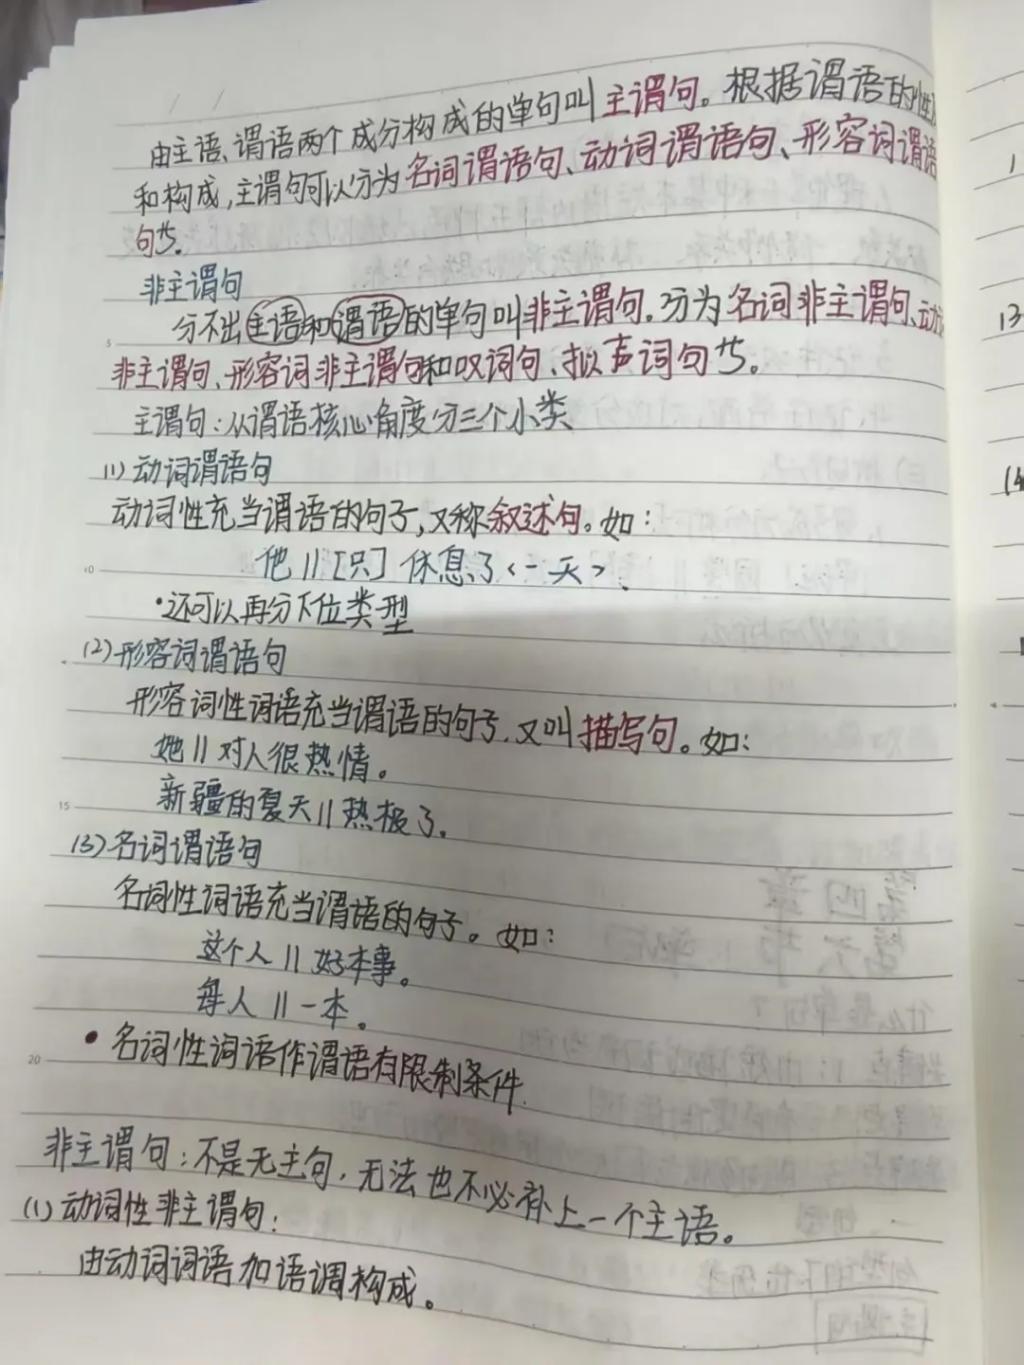 由主语、谓语两个成分构成的单句叫主谓句。根据谓语的性
和构成,主谓句可以分为名词谓语句、动词谓语句、形容词谓语
句等。
非主谓句
分不出主语和谓语的单句叫非主谓句。分为名词非主谓句、动
非主谓句、形容词非主谓句和叹词句、拟声词句等。
主谓句:从谓语核心角度分三个小类
(1)动词谓语句
动词性充当谓语的句子,又称叙述句。如:
他||[只]休息了<一天>.
•还可以再分下位类型
(2)形容词谓语句
形容词性词语充当谓语的句子,又叫描写句。如:
她||对人很热情。
新疆的夏天||热极了。
(3)名词谓语句
名词性词语充当谓语的句子。如:
这个人||好本事。
每人||一本。
•名词性词语作谓语有限制条件.
非主谓句:不是无主句,无法也不必补上一个主语。
(1)动词性非主谓句:
由动词词语加语调构成。
13